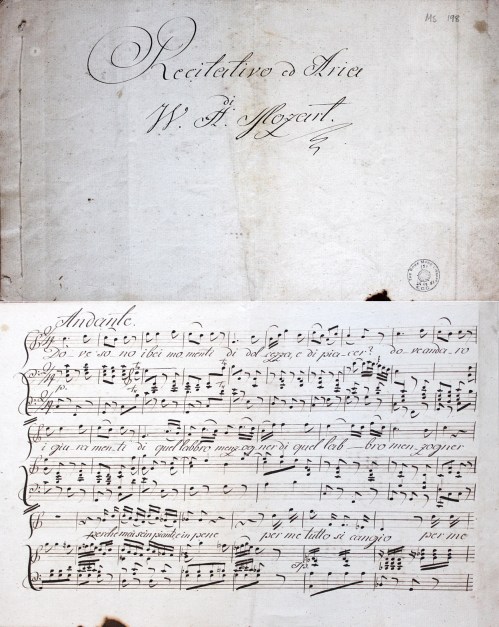 Ms 198
Recitativo ed Aria
di
W. A. Mozart.
Andante.
Do_ve so_no i bei mo menti di dol cezza, e di pia_cer? do_ve anda_ro
i giu_ra men_ti di quel labbro menzogner di quel lab_bro men_zogner
perche mai se in pianti e in pene per me tutto si cangio per me